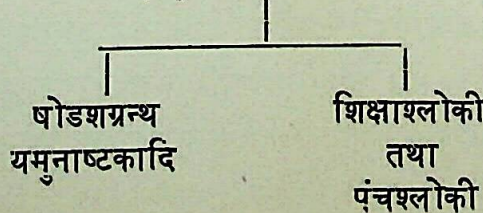 षोडशग्रन्थ
यमुनाष्टकादि
शिक्षाश्लोकी
तथा
पंचश्लोकी